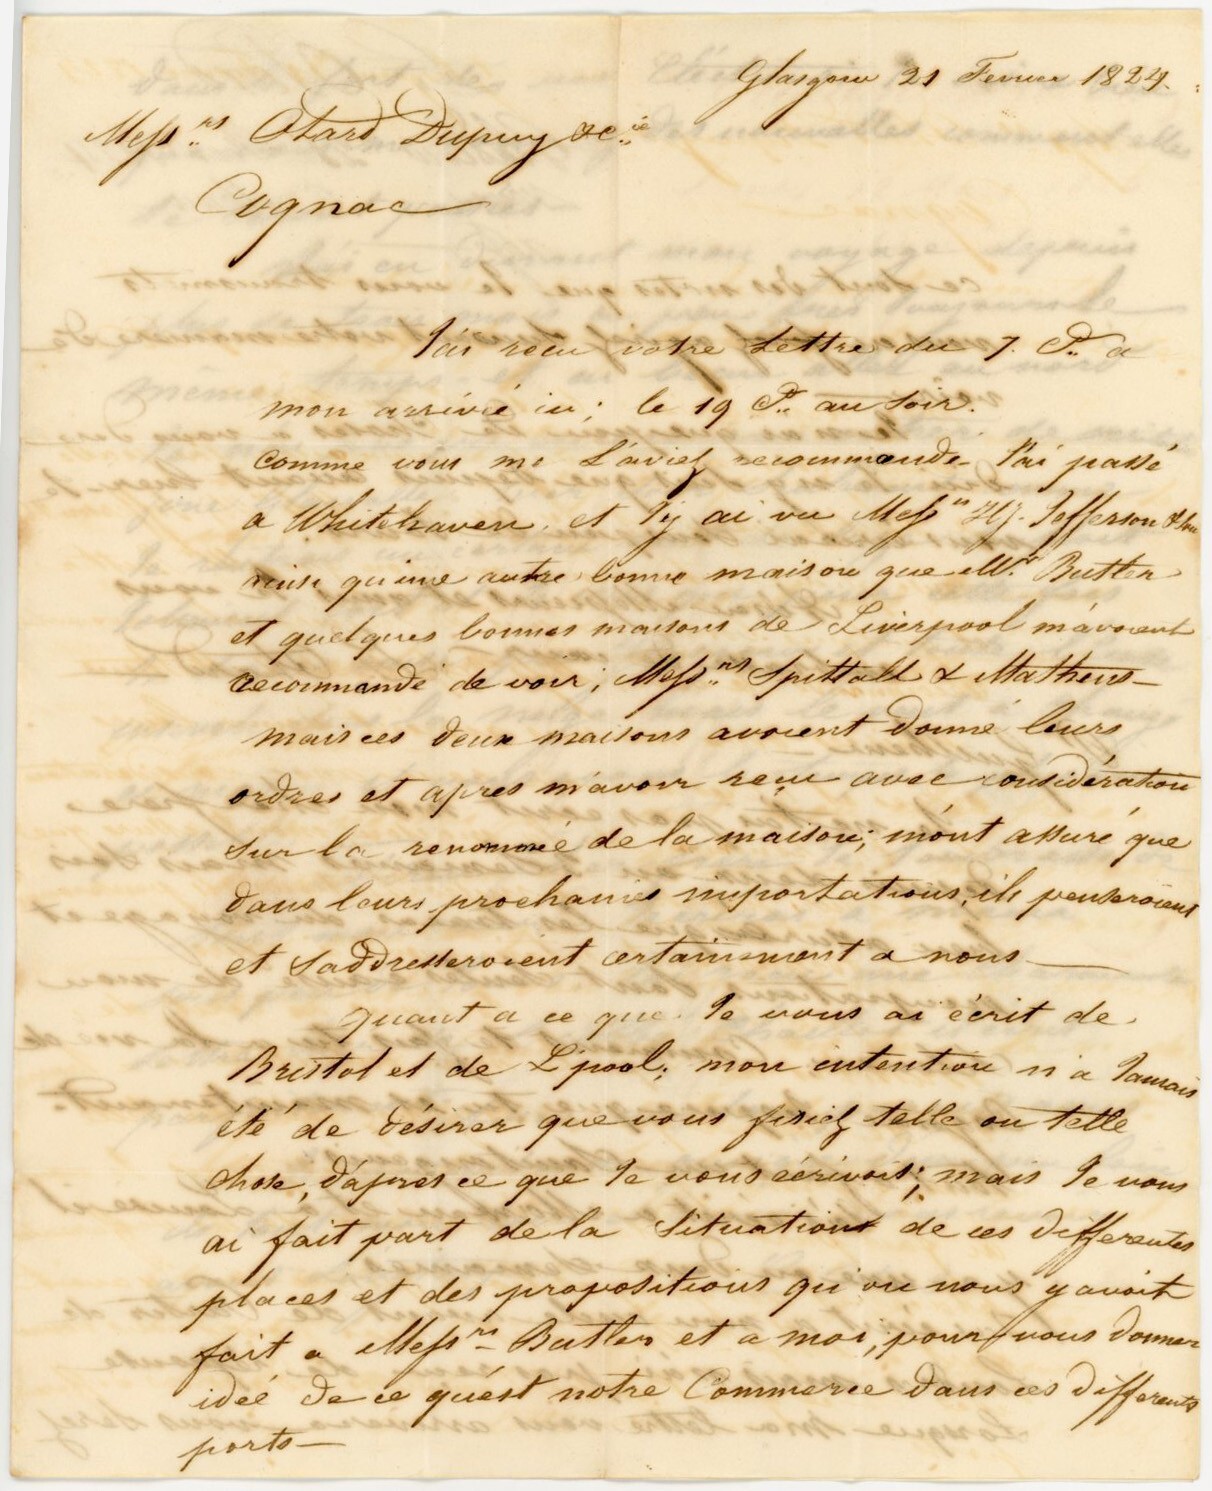 Glasgow 21 Fevrier 1824.
Mess.rs Otard Dupuy & C.ie
Cognac
J'ai recu votre Lettre du 7. C.t a
mon arrivié ici; le 19 C.t au soir.
Comme vous me L'aviez recommandé J'ai passé
a Whitehaven. et J'y ai vu Mess.rs Jefferson &
ainsi qu'une autre bonne maison que M.r Butler
et quelques bonnes maisons de Liverpool m'avoient
recommandé de voir; Mess.rs Spittall & Mathews
mais ces deux maisons avoient donné leurs
ordres et apres m'avoir reçu avec considération
sur la renommé de la maison; m'ont assuré que
dans leurs prochaines importations, ils penseroient
et s'addresseroient certainement a nous
Quant a ce que Je vous ai écrit de
Bristol et de L'pool; mon intention n'a Jamais
été de désirer que vous fisiez telle ou telle
chose, d'apres ce que Je vous écrivois; mais Je vous
ai fait part de la Situation de ces differentes
places et des propositions qu'on nous y avoit
fait a Mess.rs Butler et a moi, pour vous donner
ideé de ce qu'est notre Commerce dans ces differents
ports